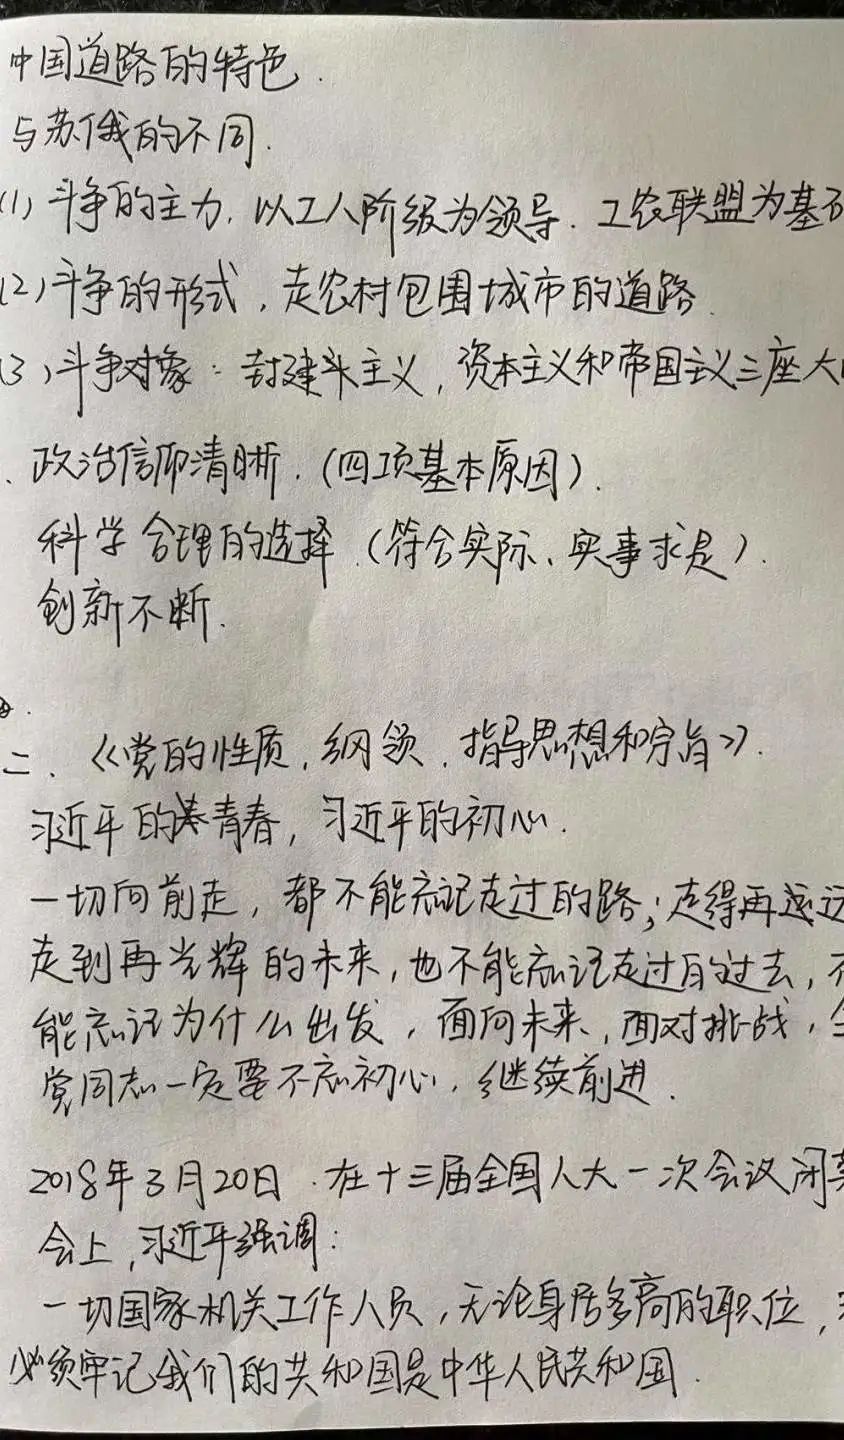 中国道路的特色.
与苏俄的不同.
(1) 斗争的主力, 以工人阶级为领导. 工农联盟为基
(2) 斗争的形式, 走农村包围城市的道路.
(3) 斗争对象: 封建头主义, 资本主义和帝国主义三座大
、政治信仰清晰. (四项基本原因).
科学合理的选择. (符合实际、实事求是).
创新不断.
二、《党的性质, 纲领, 指导思想和宗旨》.
习近平的青春, 习近平的初心.
一切向前走, 都不能忘记走过的路; 走得再远
走到再光辉的未来, 也不能忘记走过的过去, 不
能忘记为什么出发, 面向未来, 面对挑战, 全
党同志一定要不忘初心, 继续前进.
2018年3月20日. 在十三届全国人大一次会议闭幕
会上, 习近平强调:
一切国家机关工作人员, 无论身居多高的职位,
必须牢记我们的共和国是中华人民共和国.